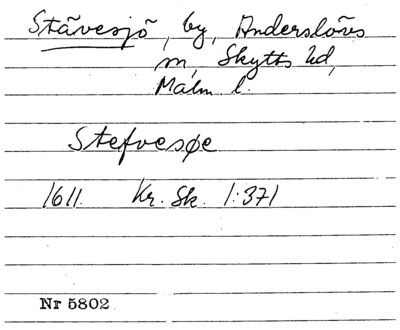 Stävesjö, by, Anderslövs
m, Skytts hd,
Malm l.
Stefvesøe
1611. Kr. Sk. 1:371
Nr 5802